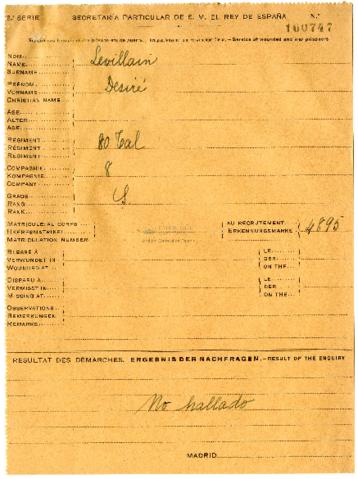 2.ª SERIE SECRETARIA PARTICULAR DE S. M. EL REY DE ESPAÑA N.º
100747
NOM
NAME
SURNAME
Levillain
PRÉNOM
VORNAME
CHRISTIAN NAME
Desiré
AGE
ALTER
AGE
RÉGIMENT
RÉGIMENT
REGIMENT
80 Tal
COMPAGNIE
KOMPAGNIE
COMPANY
8
GRADE
RANG
RANK
S.
MATRICULE AU CORPS
HEERESMATRIKEL
MATRICULATION NUMBER
AU RECRUTEMENT
ERKENNUNGSMARKE
4895
BLESSÉ À
VERWUNDET IN
WOUNDED AT
LE
DER
ON THE
DISPARU À
VERMISST IN
MISSING AT
LE
DER
ON THE
OBSERVATIONS
BEMERKUNGEN
REMARKS
RESULTAT DES DÉMARCHES. ERGEBNIS DER NACHFRAGEN.—RESULT OF THE ENQUIRY
No hallado
MADRID